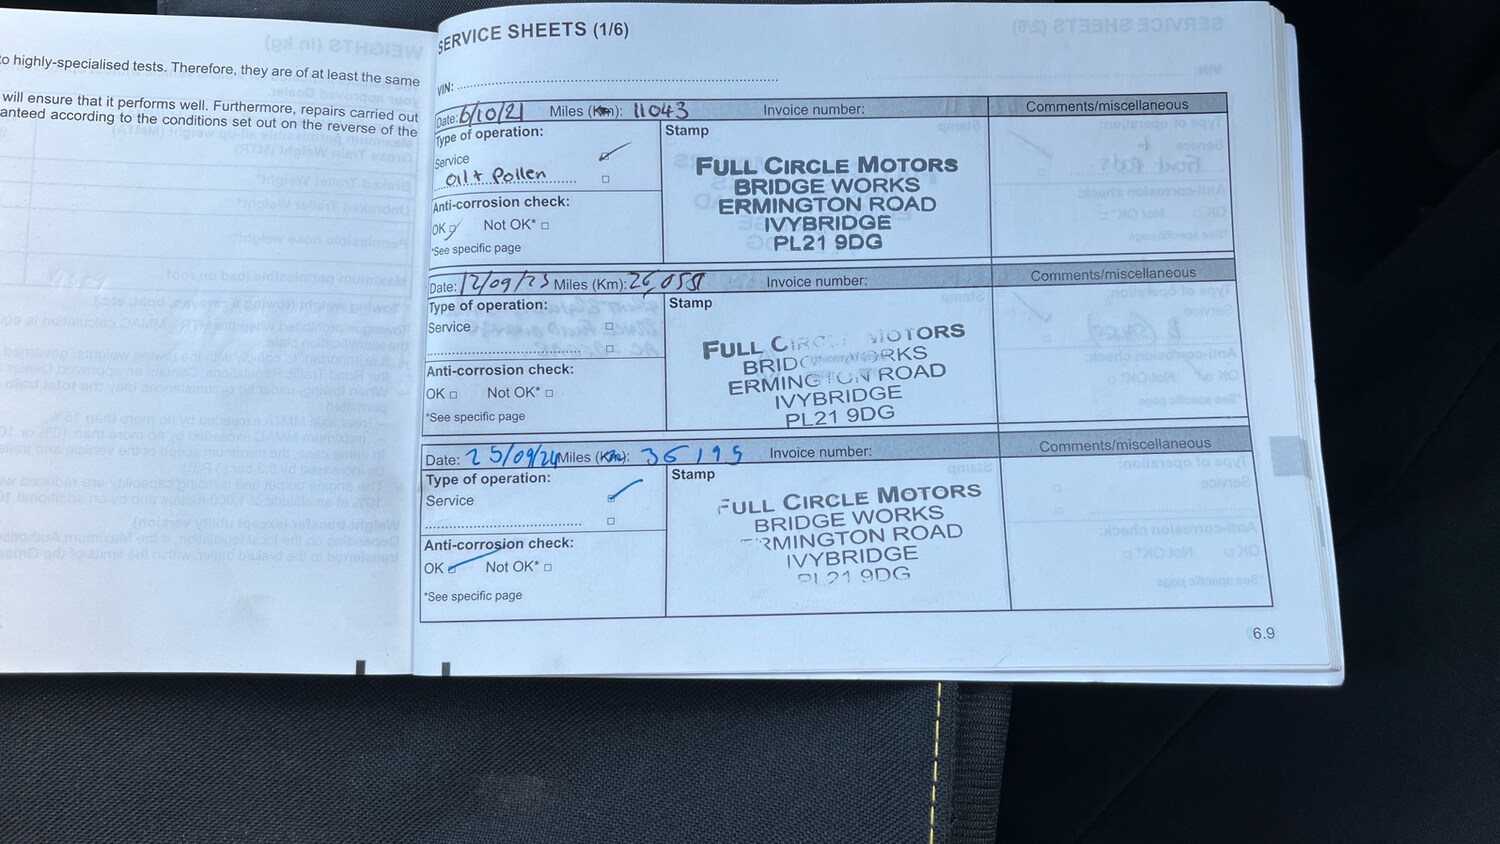 to highly-specialised tests. Therefore, they are of at least the same
will ensure that it performs well. Furthermore, repairs carried out
anteed according to the conditions set out on the reverse of the
SERVICE SHEETS (1/6)
VIN:
Date: 6/10/21 Miles (Km): 11043 Invoice number: Comments/miscellaneous
Type of operation: Stamp
Service
Oil + Pollen
Anti-corrosion check:
OK Not OK*
*See specific page
FULL CIRCLE MOTORS
BRIDGE WORKS
ERMINGTON ROAD
IVYBRIDGE
PL21 9DG
Date: 12/09/23 Miles (Km): Invoice number: Comments/miscellaneous
Type of operation: Stamp
Service
Anti-corrosion check:
OK Not OK*
*See specific page
FULL CIRC MOTORS
BRIDG WORKS
ERMINGTON ROAD
IVYBRIDGE
PL21 9DG
Date: 25/09/24 Miles (Km): 36195 Invoice number: Comments/miscellaneous
Type of operation: Stamp
Service
Anti-corrosion check:
OK Not OK*
*See specific page
FULL CIRCLE MOTORS
BRIDGE WORKS
ERMINGTON ROAD
IVYBRIDGE
PL21 9DG
6.9